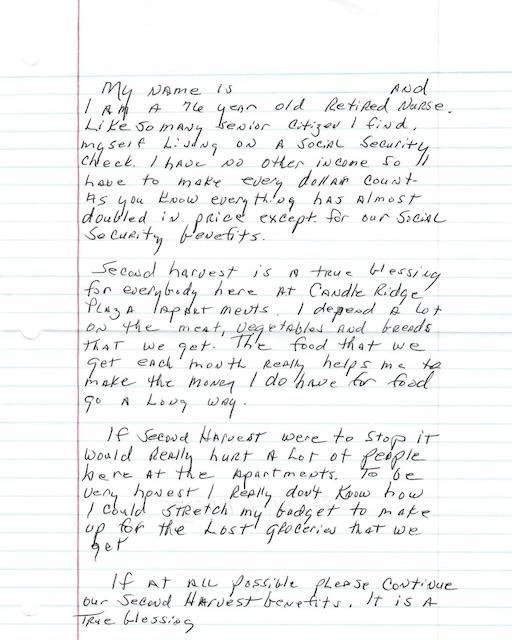 My name is and
I am a 76 year old Retired Nurse.
Like so many senior citizen I find,
myself living on a Social Security
check. I have no other income so I
have to make every dollar count.
As you know everything has almost
doubled in price except for our Social
Security benefits.
Second harvest is a true blessing
for everybody here at Candle Ridge
Plaza Apartments. I depend a lot
on the meat, vegetables and breads
that we get. The food that we
get each month really helps me to
make the money I do have for food
go a long way.
If Second Harvest were to stop it
would really hurt a lot of people
here at the apartments. To be
very honest I really don't know how
I could stretch my budget to make
up for the lost groceries that we
get
If at all possible please continue
our Second Harvest benefits. It is a
true blessing